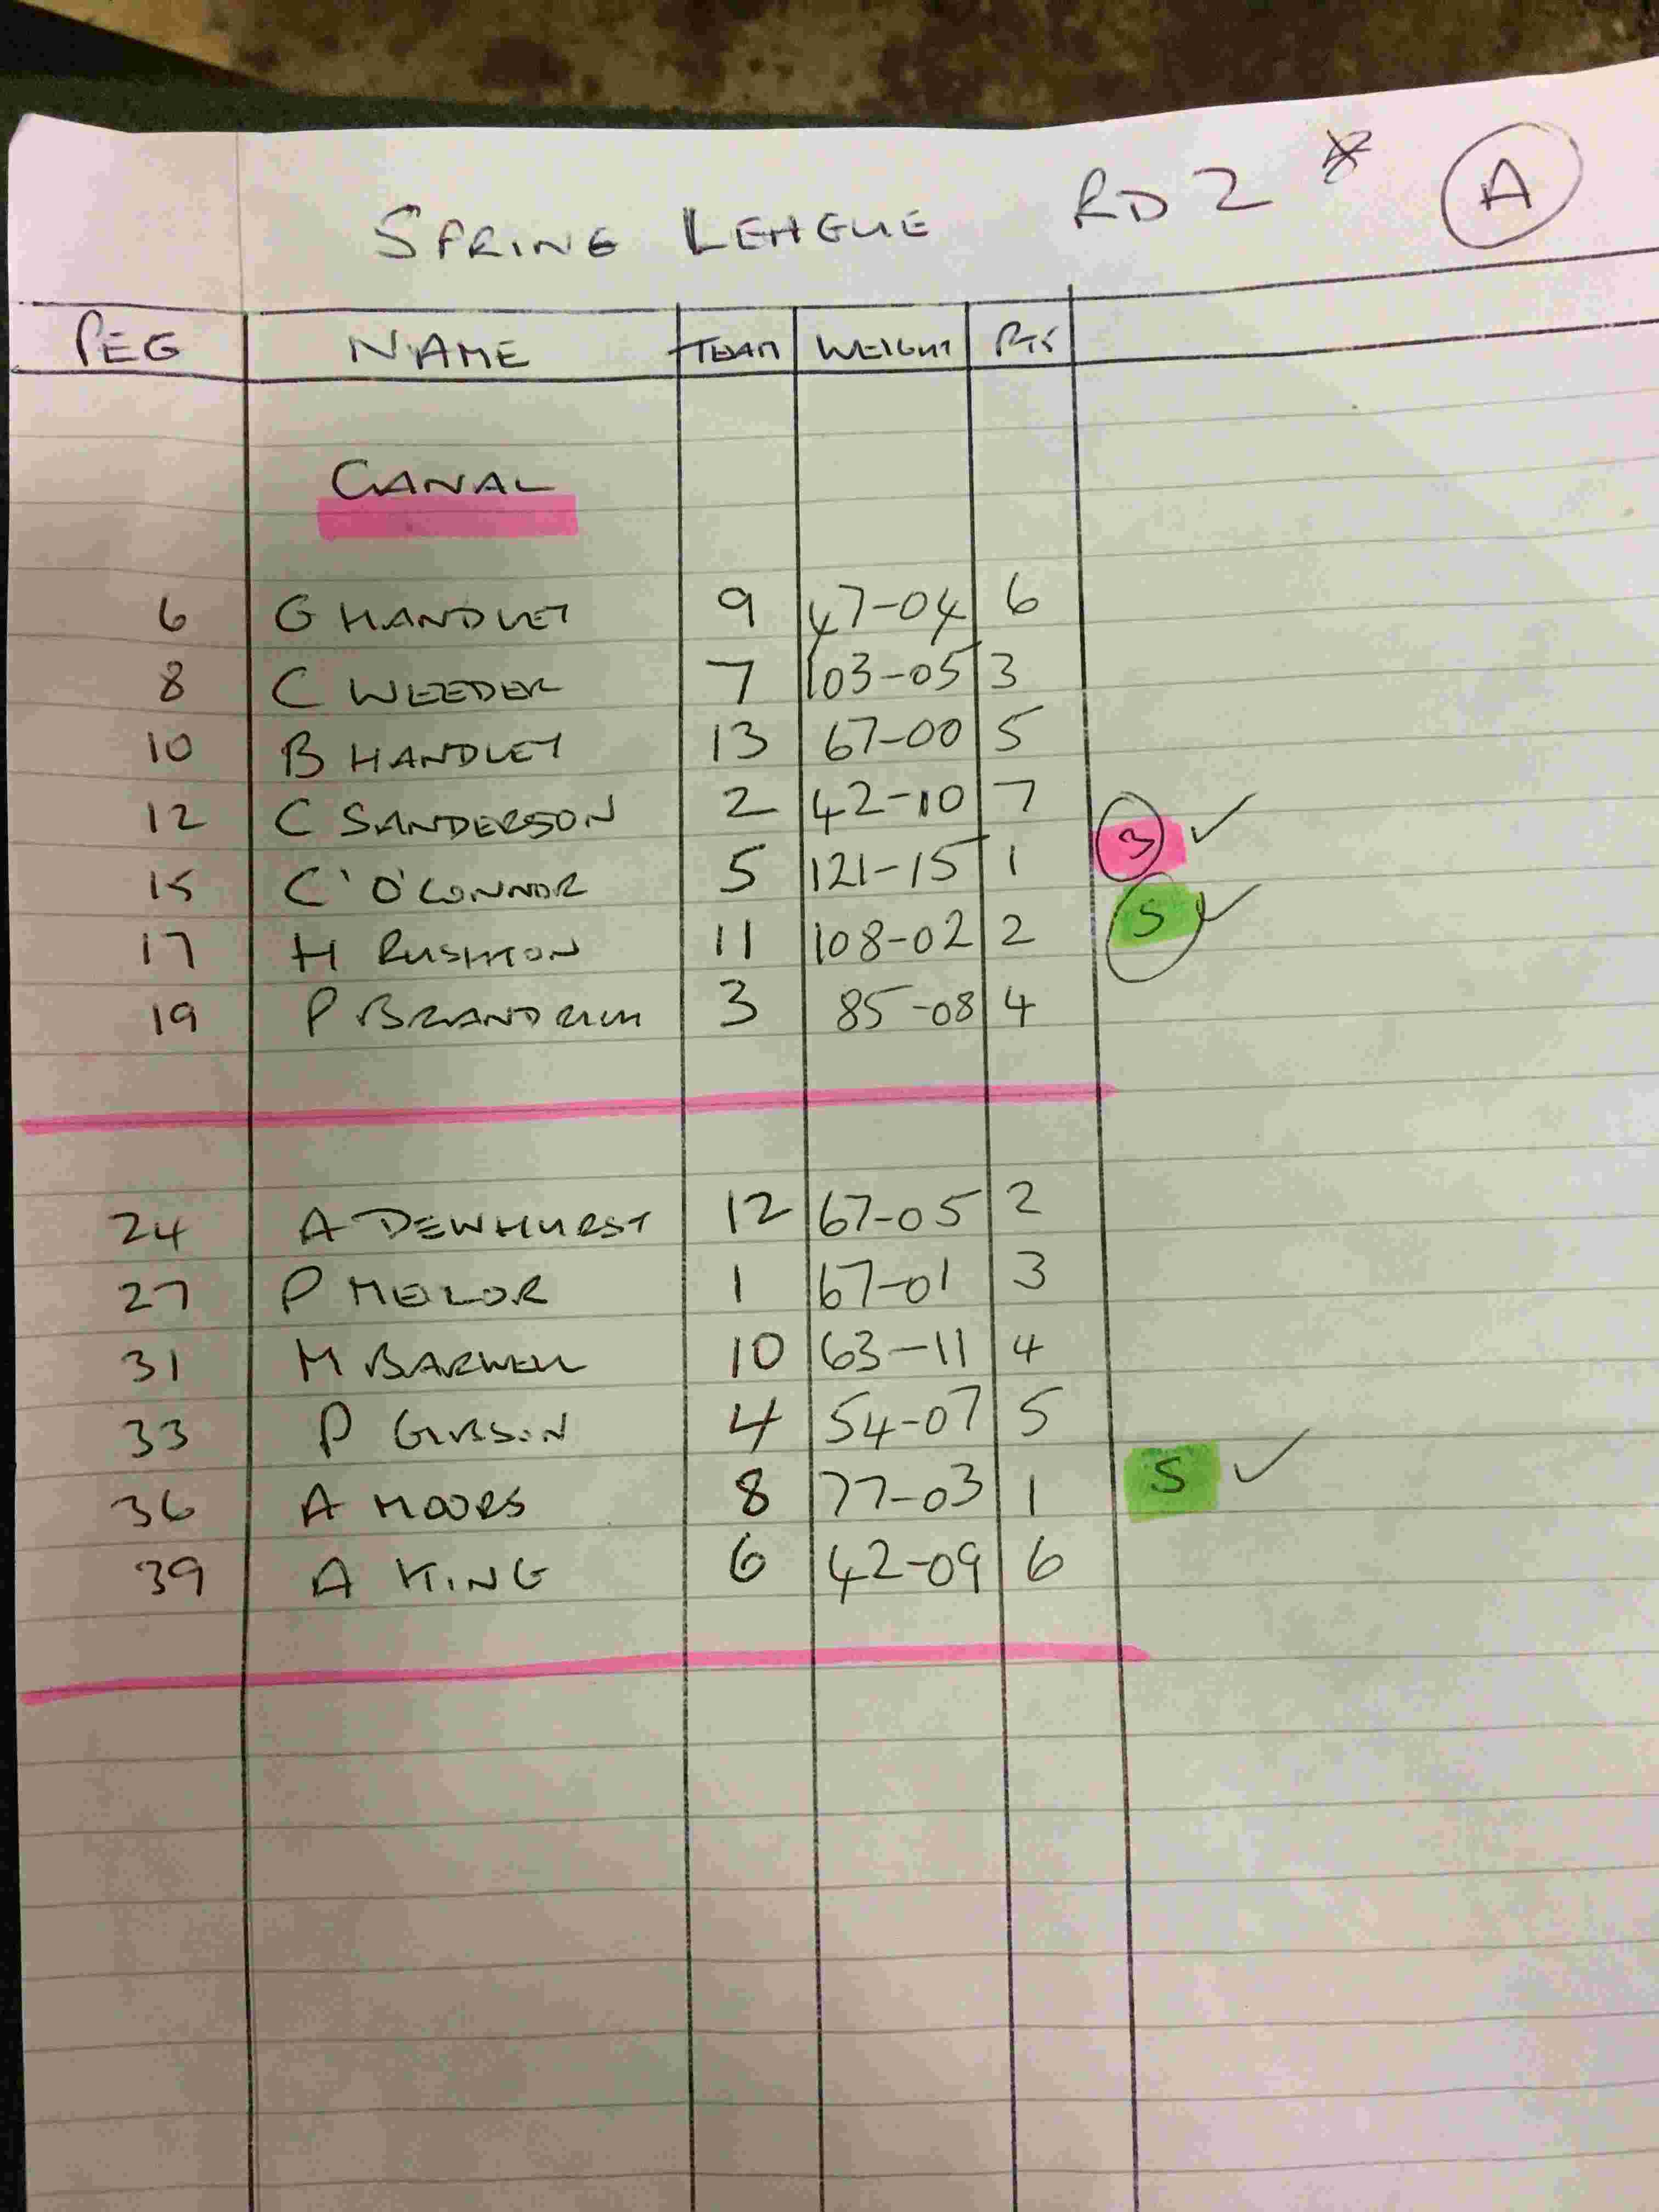 SPRING LEAGUE RD 2 * A
PEG NAME TEAM WEIGHT PTS
CANAL
6 G HANDLEY 9 47-04 6
8 C WEEDER 7 103-05 3
10 B HANDLEY 13 67-00 5
12 C SANDERSON 2 42-10 7
3 ✓
15 C'O'CONNOR 5 121-15 1
5 ✓
17 H RUSHTON 11 108-02 2
19 P 3 85-08 4
24 A DEWHURST 12 67-05 2
27 P MELLOR 1 67-01 3
31 M BARWELL 10 63-11 4
33 P GIBSON 4 54-07 5
36 A MOORS 8 77-03 1 5 ✓
39 A KING 6 42-09 6